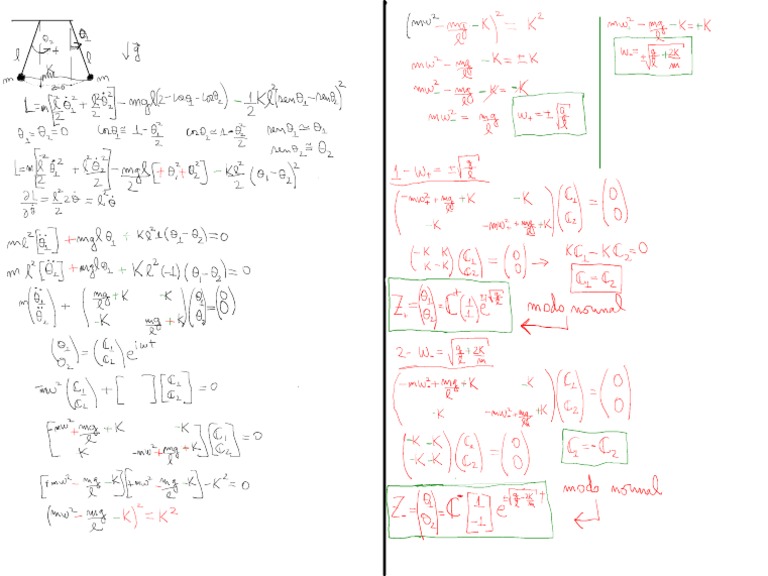 θ₂ θ₁
l l ↓g⃗
m K m
L=m[l²θ̇₁²/2 + l²θ̇₂²/2] - mgl(2-cosθ₁-cosθ₂) - 1/2 Kl²(senθ₁-senθ₂)²
θ₁=θ₂=0 cosθ₁≅1-θ₁²/2 cosθ₂≅1-θ₂²/2 senθ₁≅θ₁
senθ₂≅θ₂
L=m[l²/2 θ̇₁² + l²θ̇₂²/2] - mgl/2 [+θ₁²+θ₂²] - Kl²/2 (θ₁-θ₂)²
∂L/∂θ̇ = l²/2 2θ̇ = l²θ̇
ml²[θ̈₁] + mglθ₁ + Kl²(θ₁-θ₂)=0
ml²[θ̈₂] + mglθ₂ + Kl²(-1)(θ₁-θ₂)=0
m(θ̈₁ θ̈₂) + (mg/l+K -K -K mg/l+K)(θ₁ θ₂)=(0 0)
(θ₁ θ₂) = (C₁ C₂) e^iωt
-mw²(C₁ C₂) + [ ][C₁ C₂] = 0
[-mw²+mg/l+K -K K -mw²+mg/l+K][C₁ C₂] = 0
[+mw²-mg/l-K][+mw²-mg/l-K]-K²=0
(mw²-mg/l-K)²=K²
(mw²-mg/l-K)²=K²
mw²-mg/l-K=±K
mw²-mg/l-K=-K
mw²=mg/l w₊=±√(g/l)
mw²-mg/l-K=+K
w₋=±√(g/l+2K/m)
1-w₊=±√(g/l)
(-mw₊²+mg/l+K -K -K -mw₊²+mg/l+K)(C₁ C₂)=(0 0)
(-K K K-K)(C₁ C₂)=(0 0) → KC₁-KC₂=0
C₁=C₂
Z₊=(θ₁ θ₂)=C⁺(1 1)e^±i√(g/l)t modo normal
2-w₋=√(g/l+2K/m)
(-mw₋²+mg/l+K -K -K -mw₋²+mg/l+K)(C₁ C₂)=(0 0)
(-K -K -K -K)(C₁ C₂)=(0 0) C₁=-C₂
Z₋=(θ₁ θ₂)=C⁻[1 -1]e modo normal